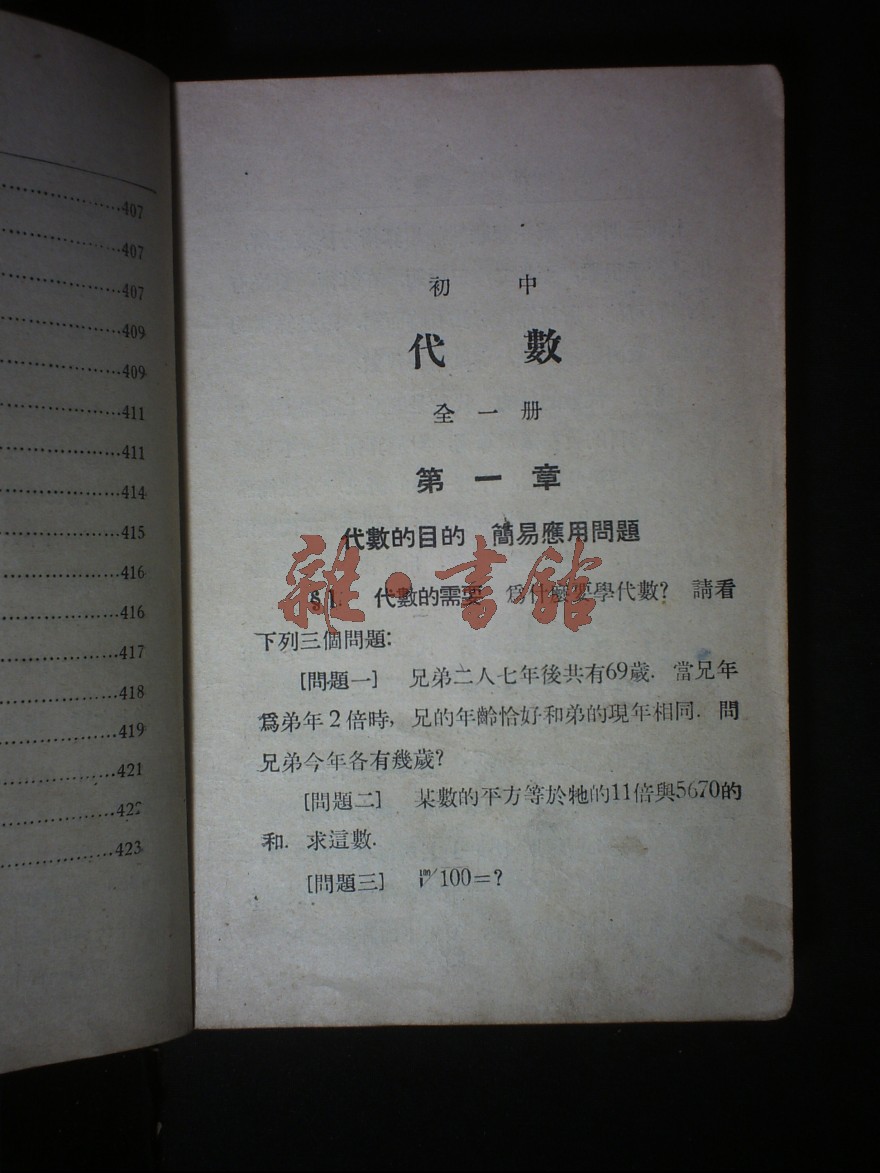 407
407
407
409
409
411
411
414
415
416
416
417
418
419
421
422
423
初 中
代 數
全 一 册
第 一 章
代數的目的 簡易應用問題
§1. 代數的需要 爲什麼要學代數? 請看
下列三個問題:
[問題一] 兄弟二人七年後共有69歲. 當兄年
爲弟年2倍時, 兄的年齡恰好和弟的現年相同. 問
兄弟今年各有幾歲?
[問題二] 某數的平方等於牠的11倍與5670的
和. 求這數.
[問題三] 100=?
雜·書館